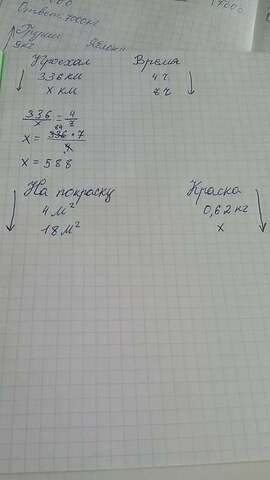 Груши Яблоки
9кг
Проехал Время
336 км 4 ч.
х км 7 ч
336/х = 4/7
х = 336 • 7 / 4
84
х = 588
На покраску Краска
4 м² 0,62 кг
18 м² х